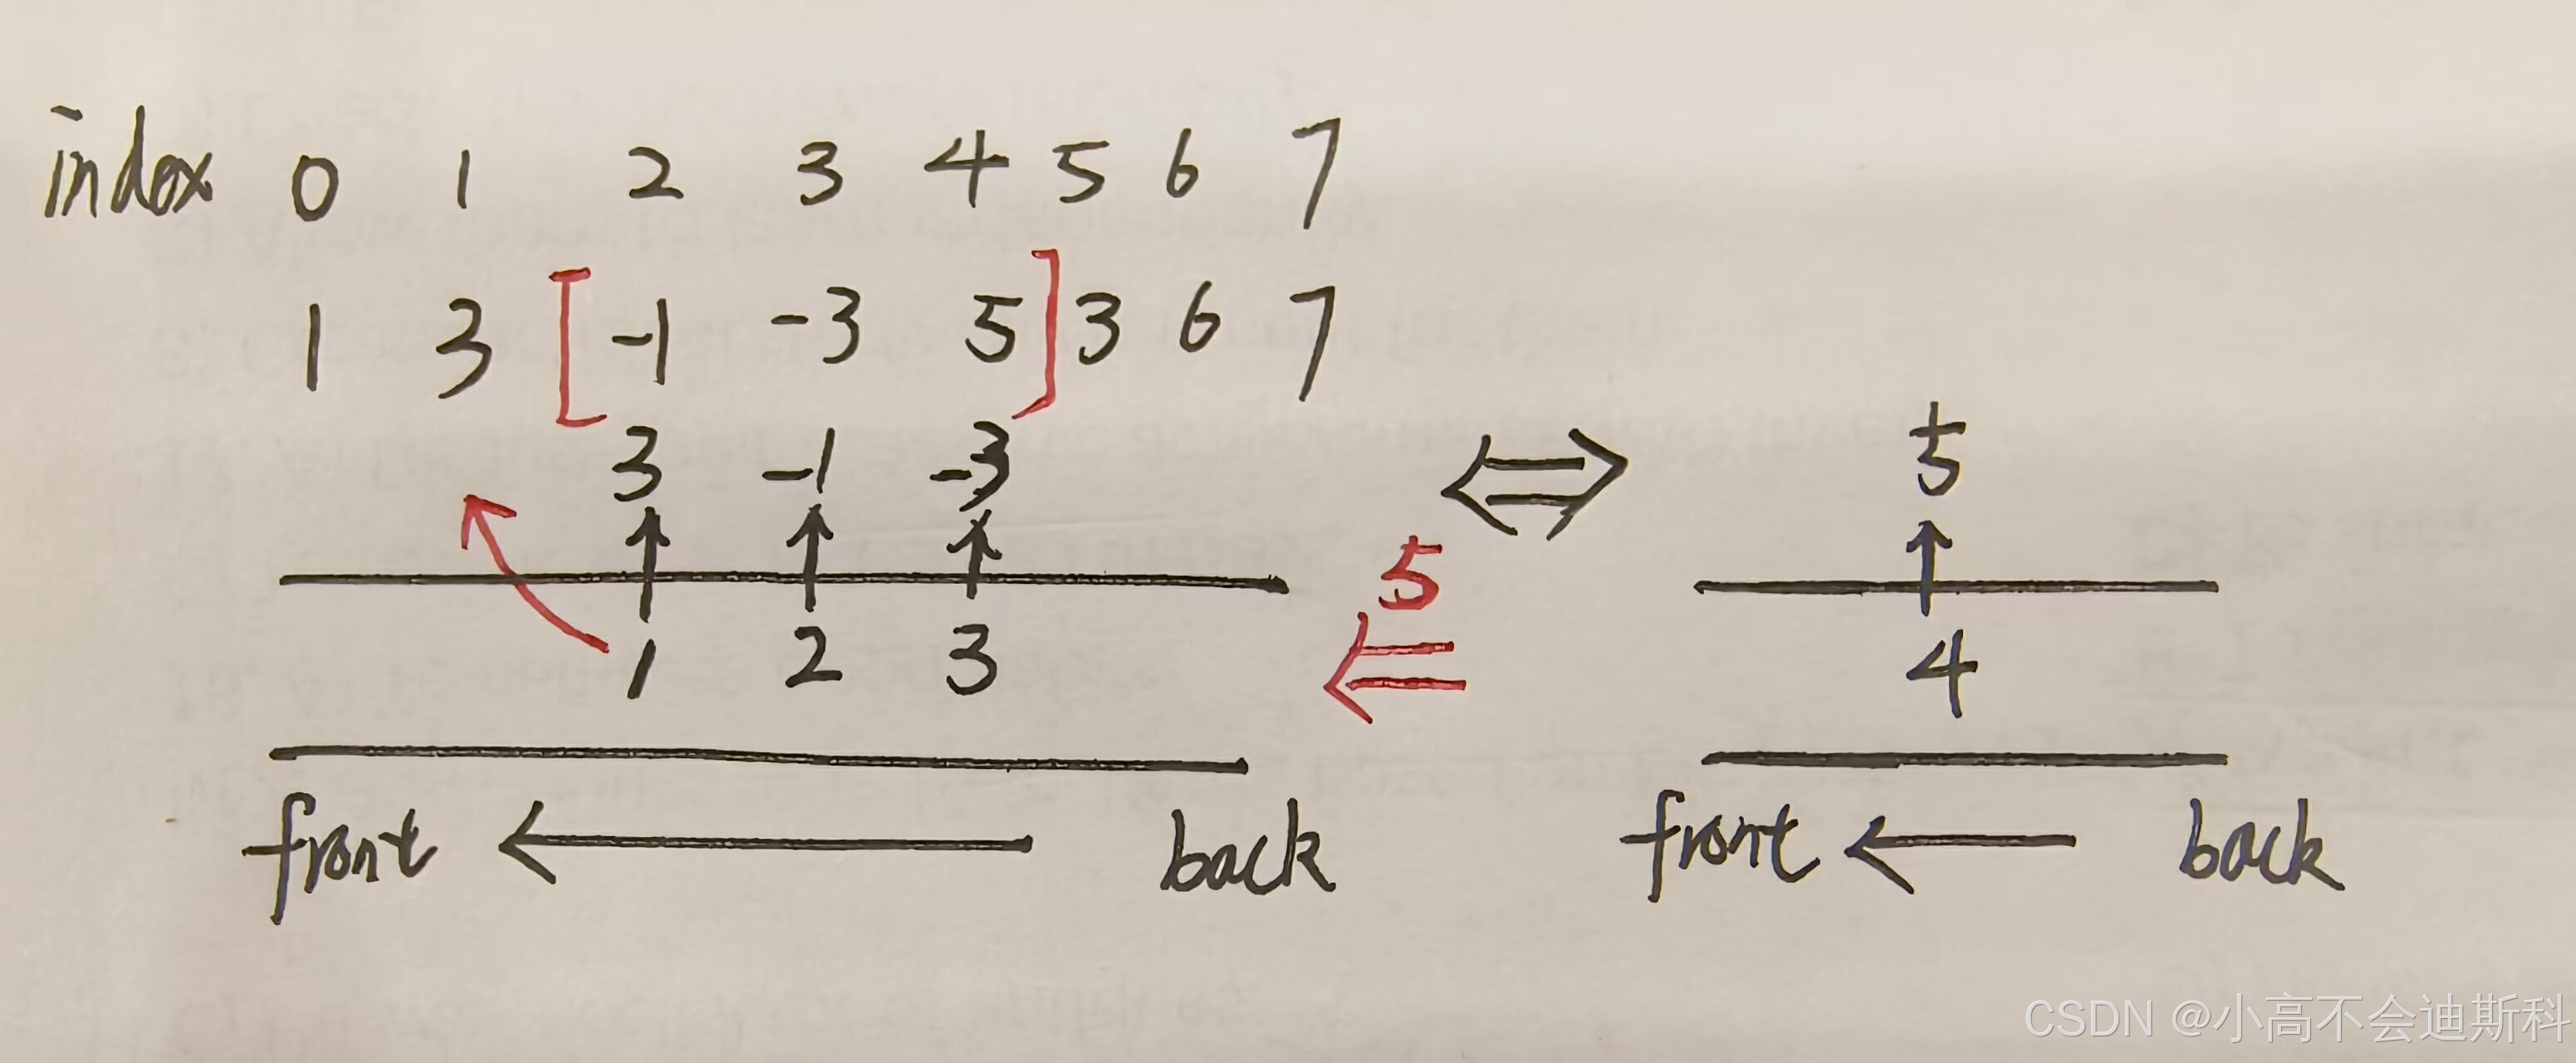 index 0 1 2 3 4 5 6 7
1 3 [ -1 -3 5 ] 3 6 7
3 -1 -3
5
5
1 2 3
4
front back front back
CSDN @小高不会迪斯科